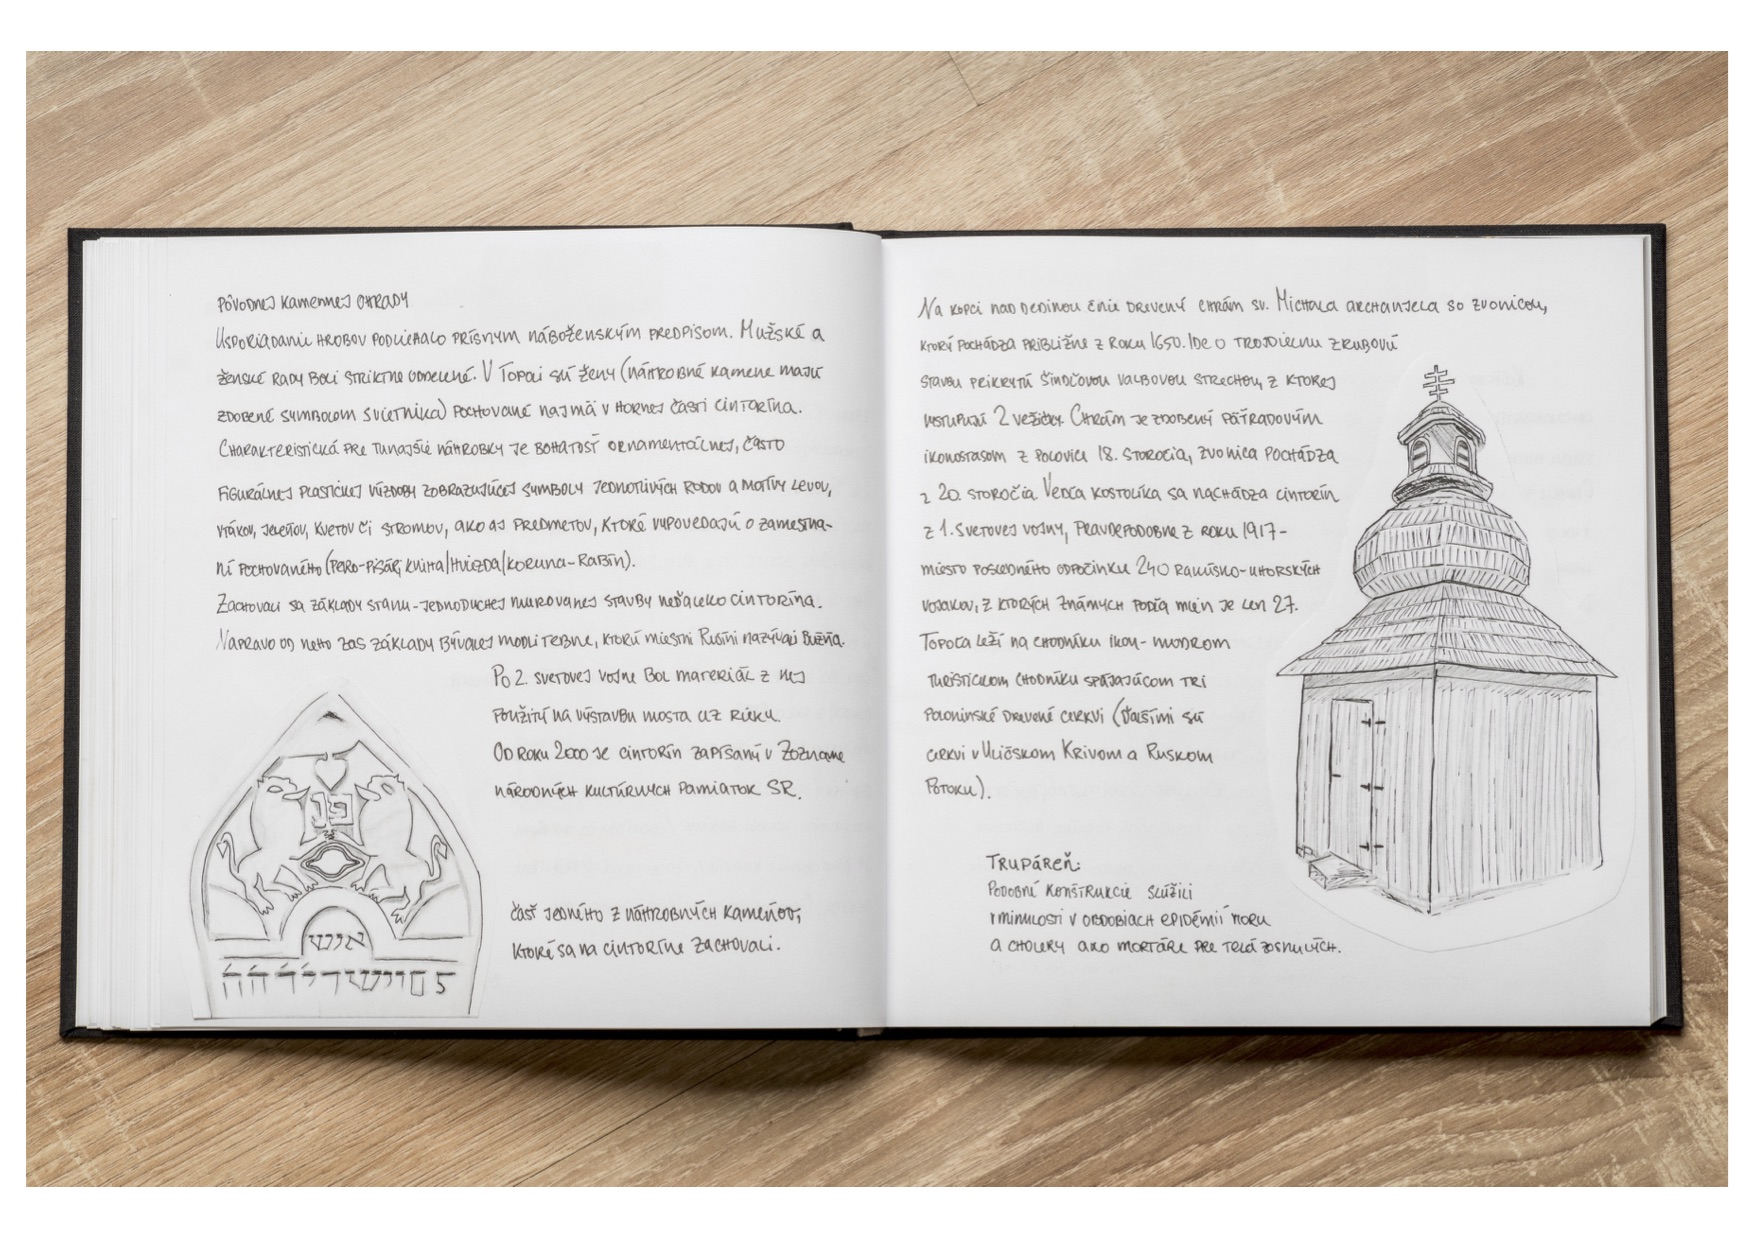 Pôvodnej kamennej ohrady
Usporiadanie hrobov podliehalo prísnym náboženským predpisom. Mužské a
ženské rady boli striktne oddelené. V Topoli sú ženy (náhrobné kamene majú
zdobené symbolom svietnika) pochované najmä v hornej časti cintorína.
Charakteristická pre tunajšie náhrobky je bohatosť ornamentálnej, často
figurálnej plastickej výzdoby zobrazujúcej symboly jednotlivých rodov a motívy levov,
vtákov, jeleňov, kvetov či stromov, ako aj predmetov, ktoré vypovedajú o zamestna-
ní pochovaného (pero-pisár, kniha/hviezda/koruna-rabín).
Zachovali sa základy stanu-jednoduchej murovanej stavby neďaleko cintorína.
Napravo od neho zas základy bývalej modlitebne, ktorú miestni Rusíni nazývali Bužňa.
Po 2. svetovej vojne bol materiál z nej
použitý na výstavbu mosta cez rieku.
Od roku 2000 je cintorín zapísaný v Zozname
národných kultúrnych pamiatok SR.
פנ
איש
časť jedného z náhrobných kameňov,
ktoré sa na cintoríne zachovali.
Na kopci nad dedinou čnie drevený chrám sv. Michala archanjela so zvonicou,
ktorý pochádza približne z roku 1650. Ide o trojdielnu zrubovú
stavbu prikrytú šindľovou valbovou strechou z ktorej
vystupujú 2 vežičky. Chrám je zdobený päťradovým
ikonostasom z polovice 18. storočia, zvonica pochádza
z 20. storočia Vedľa kostolíka sa nachádza cintorín
z 1. svetovej vojny, pravdepodobne z roku 1917-
miesto posledného odpočinku 240 rakúsko-uhorských
vojakov, z ktorých známych podľa mien je len 27.
Topoľa leží na chodníku ikon- modrom
turistickom chodníku spájajúcom tri
poloninské drevené cerkvi (ďalšími sú
cerkvi v Uličskom Krivom a Ruskom
Potoku).
Trupáreň:
Podobné konštrukcie slúžili
v minulosti v obdobiach epidémií moru
a cholery ako mortáre pre telá zosnulých.